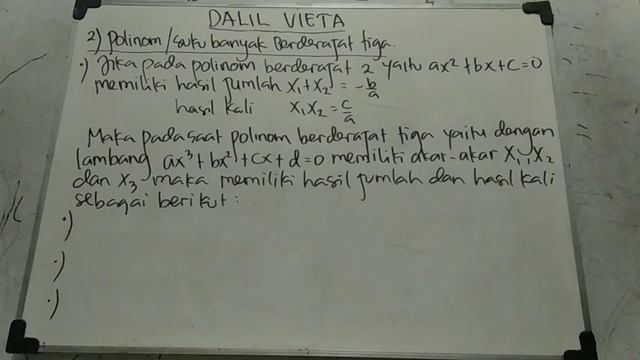 DALIL VIETA
2) Polinom/suku banyak Berderajat tiga.
•) Jika pada polinom berderajat 2 yaitu ax² + bx + c = 0
memiliki hasil jumlah x₁ + x₂ = -b/a
hasil kali x₁x₂ = c/a
Maka pada saat polinom berderajat tiga yaitu dengan
lambang ax³ + bx² + cx + d = 0 memiliki akar-akar x₁, x₂
dan x₃ maka memiliki hasil jumlah dan hasil kali
sebagai berikut :
•)
•)
•)